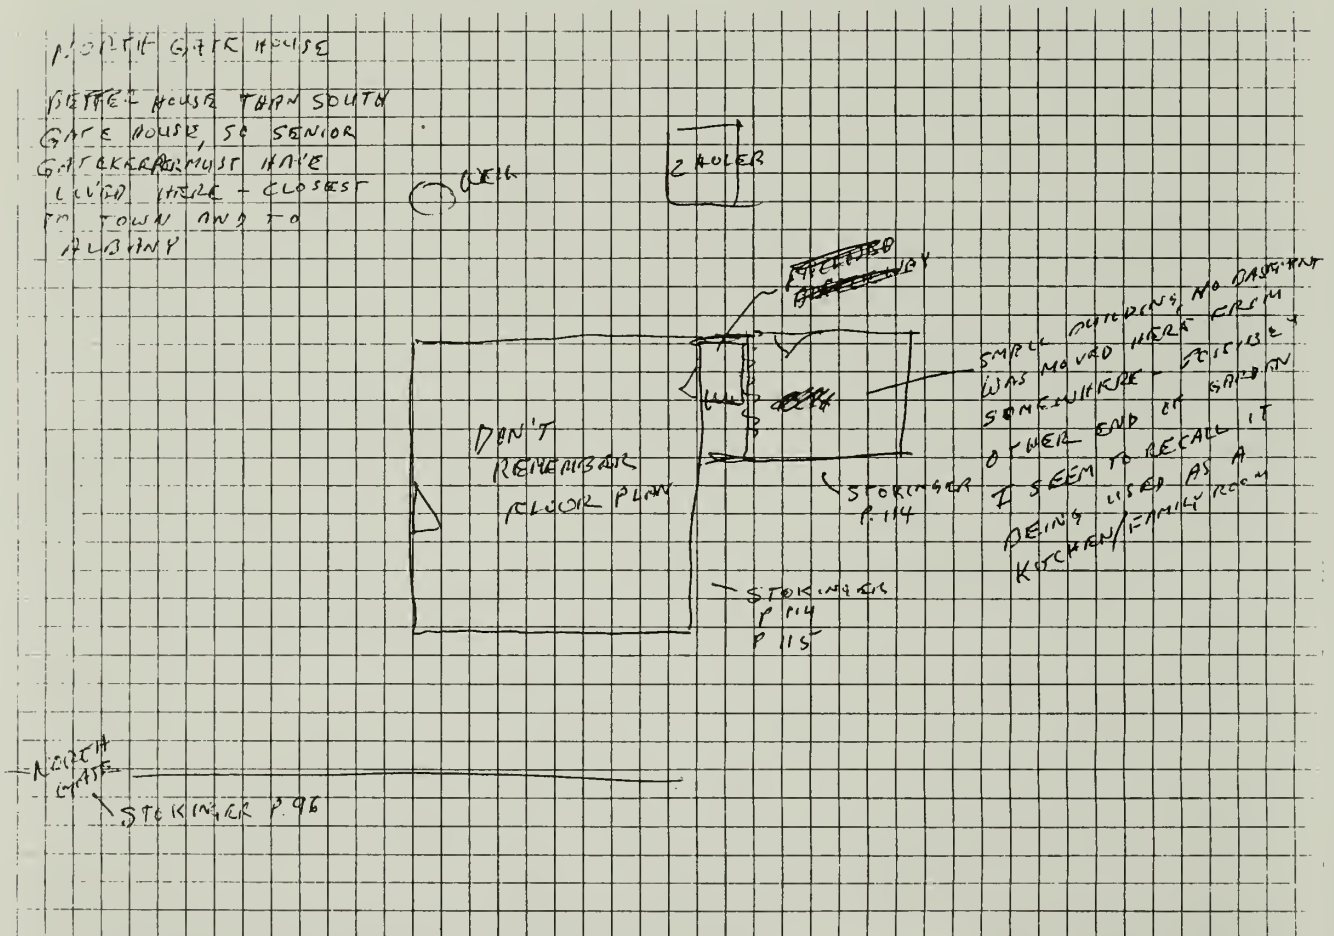 NORTH GATE HOUSE
BETTER HOUSE THAN SOUTH
GATE HOUSE, SO SENIOR
GATEKEEPER MUST HAVE
LIVED HERE - CLOSEST
TO TOWN AND TO
ALBANY
WELL
2 HOLER
SMALL BUILDING, NO BASEMENT
WAS MOVED HERE FROM
SOMEWHERE - POSSIBLY
OTHER END OF GARDEN
I SEEM TO RECALL IT
BEING USED AS A
KITCHEN/FAMILY ROOM
DON'T
REMEMBER
FLOOR PLAN
STOKINGER
P. 114
STOKINGER
P 114
P 115
NORTH
GATE
STOKINGER P. 96